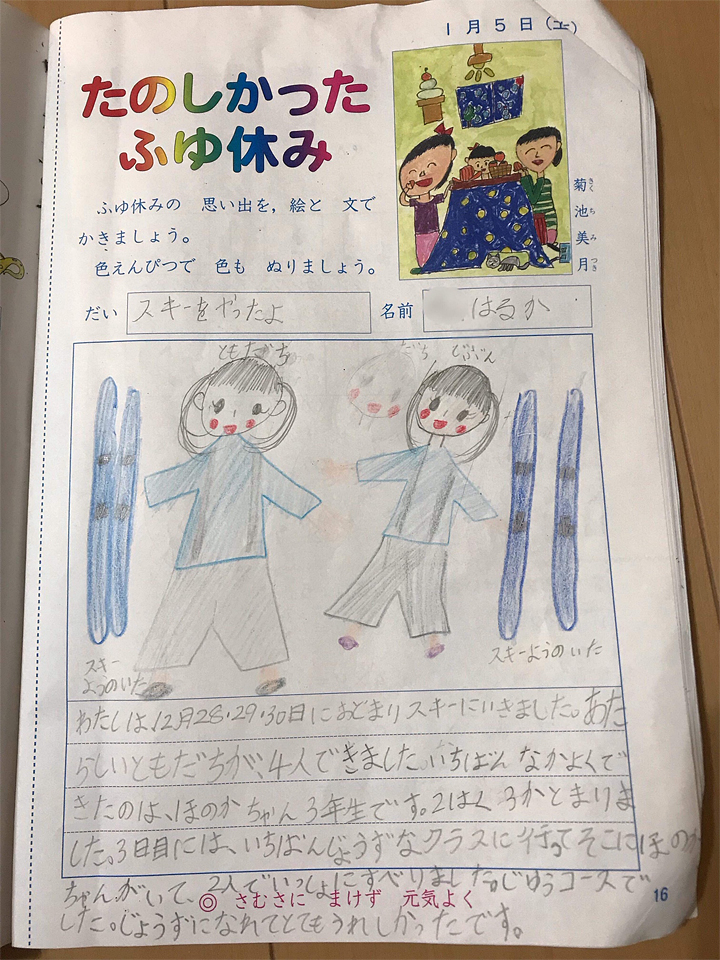 1月5日(土)
たのしかった
ふゆ休み
ふゆ休みの 思い出を，絵と 文で
かきましょう。
色えんぴつで 色も ぬりましょう。
菊池美月
きくちみつき
だい スキーをやったよ
名前 はるか
ともだち
だち じぶん
スキー
ようのいた
スキーようのいた
わたしは12月28・29・30日におとまりスキーにいきました。あた
らしいともだちが、4人できました。いちばんなかよくで
きたのは、ほのかちゃん3年生です。2はく3かとまりま
した。3日目には、いちばんじょうずなクラスに行ってそこにほのか
ちゃんがいて、2人でいっしょにすべりました。じゆうコースで
した。じょうずになれてとてもうれしかったです。
◎ さむさに まけず 元気よく
16